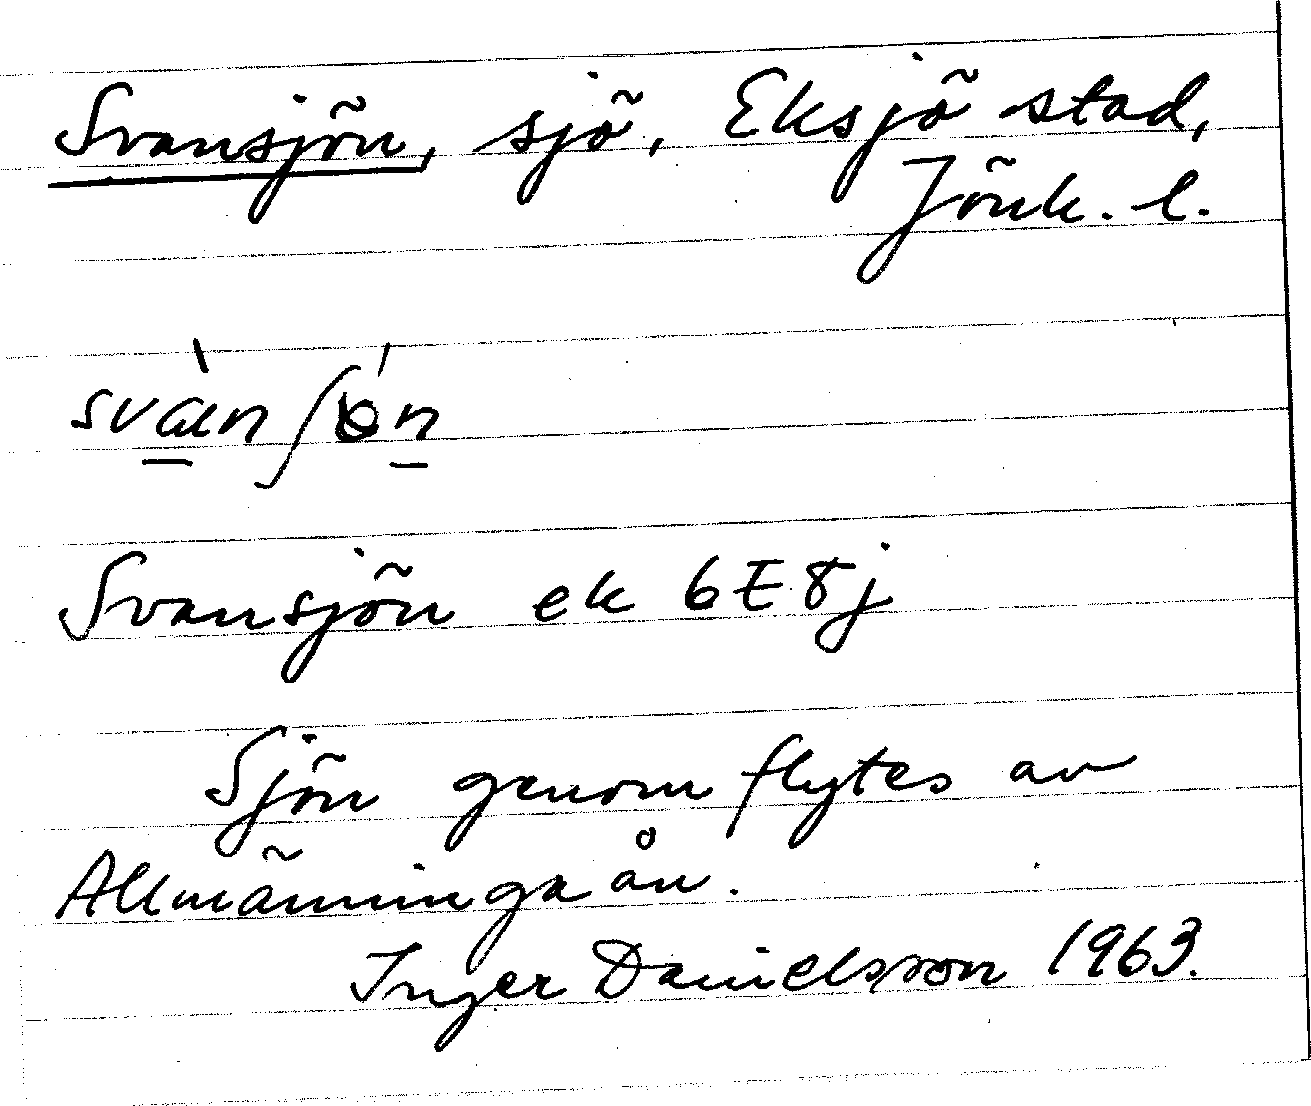 Svansjön, sjö, Eksjö stad,
Jönk. l.
svàn ʃǿn
Svansjön ek 6E8j
Sjön genomflytes av
Allmänningaån.
Inger Danielsson 1963.